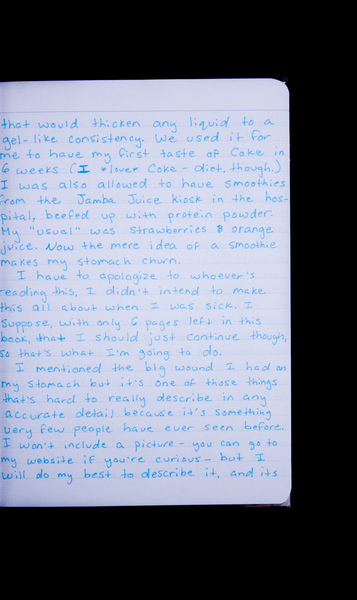 that would thicken any liquid to a
gel-like consistency. We used it for
me to have my first taste of Coke in
6 weeks (I *love* Coke - diet, though.)
I was also allowed to have smoothies
from the Jamba Juice kiosk in the hos-
pital, beefed up with protein powder.
My "usual" was strawberries & orange
juice. Now the mere idea of a smoothie
makes my stomach churn.
I have to apologize to whoever's
reading this, I didn't intend to make
this all about when I was sick. I
suppose, with only 6 pages left in this
book, that I should just continue though,
so that's what I'm going to do.
I mentioned the big wound I had on
my stomach but it's one of those things
that's hard to really describe in any
accurate detail because it's something
very few people have ever seen before.
I won't include a picture - you can go to
my website if you're curious - but I
will do my best to describe it, and its